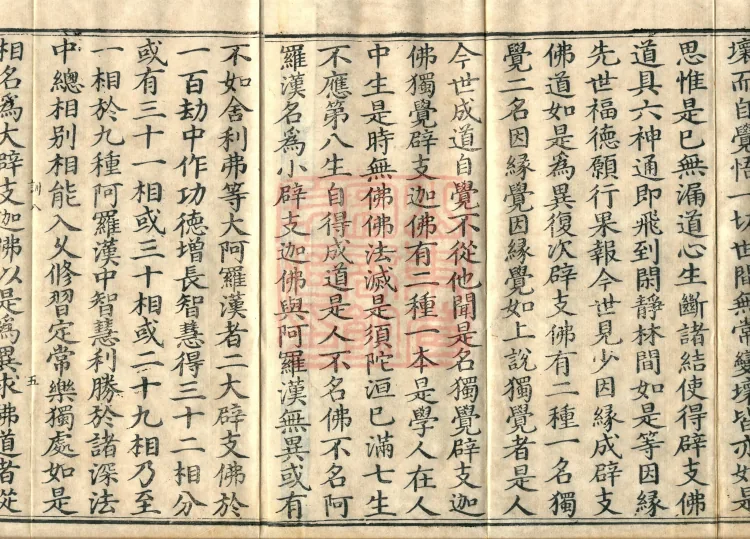 壞而自覺悟一切世間無常變壞皆亦如是
思惟是已無漏道心生斷諸結使得辟支佛
道具六神通即飛到閑靜林間如是等因緣
先世福德願行果報今世見少因緣成辟支
佛道如是為異復次辟支佛有二種一名獨
覺二名因緣覺因緣覺如上說獨覺者是人
今世成道自覺不從他聞是名獨覺辟支迦
佛獨覺辟支迦佛有二種一本是學人在人
中生是時無佛佛法滅是須陀洹已滿七生
不應第八生自得成道是人不名佛不名阿
羅漢名為小辟支迦佛與阿羅漢無異或有
不如舍利弗等大阿羅漢者二大辟支佛於
一百劫中作功德增長智慧得三十二相分
或有三十一相或三十相或二十九相乃至
一相於九種阿羅漢中智慧利勝於諸深法
中總相別相能入久修習定常樂獨處如是
五
相名為大辟支迦佛以是為異求佛道者從